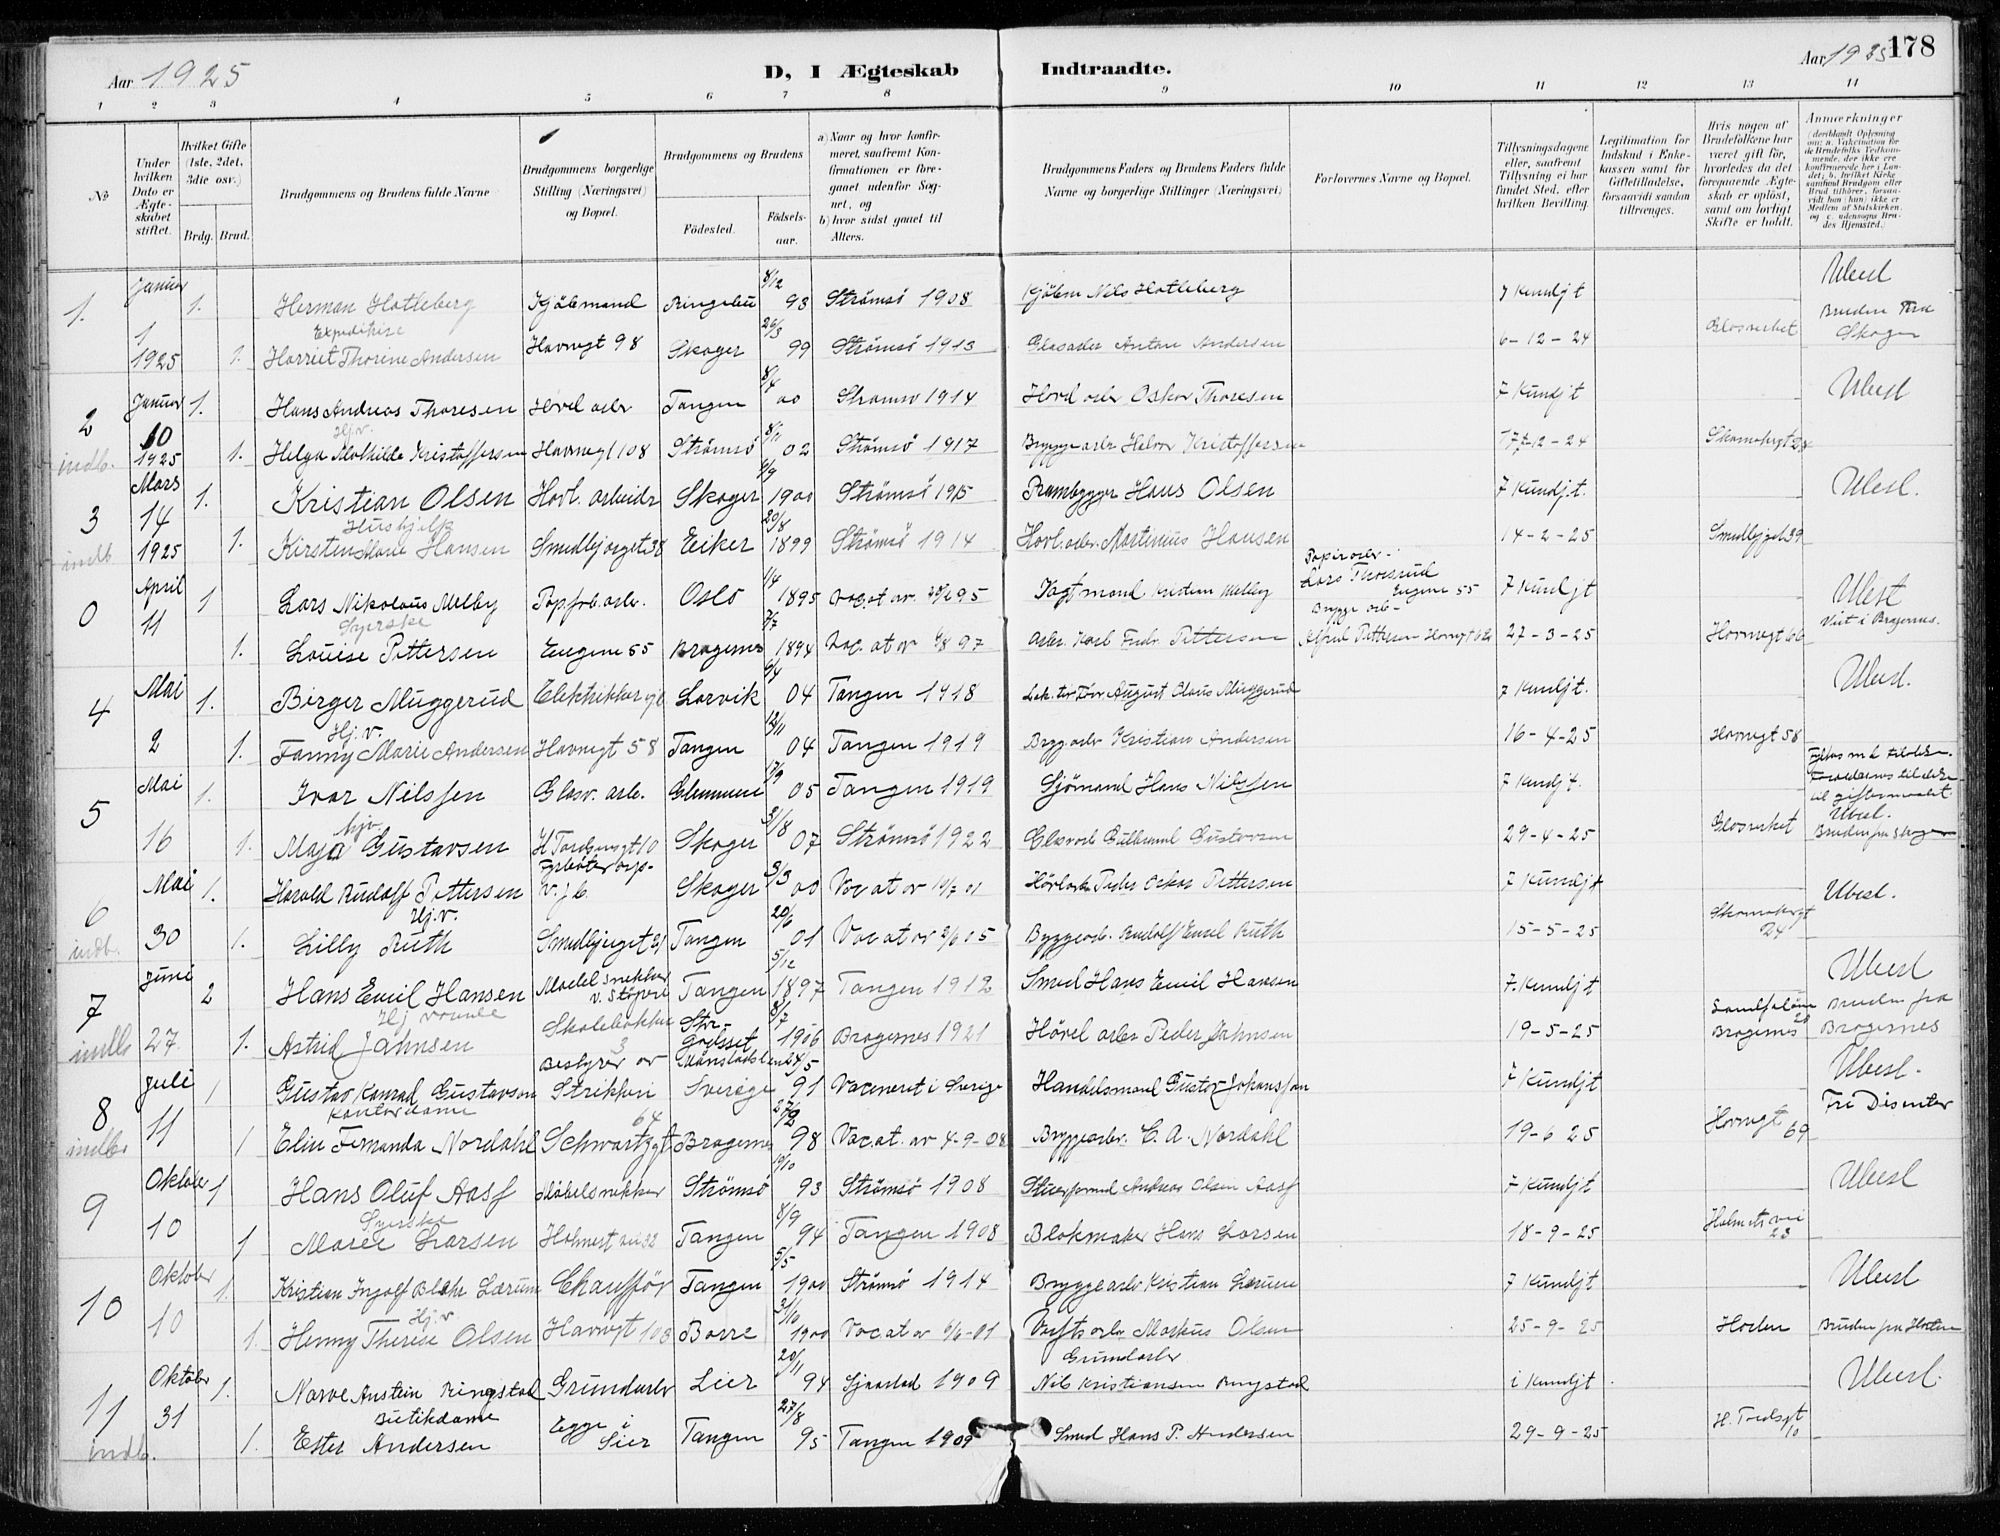 Aar 1925
D, I Ægteskab Indtraadte.
Aar 1925 178
1 2 3 4 5 6 7 8 9 10 11 12 13 14
No
Under hvilken Dato er Ægteskabet stiftet.
Hvilket Gifte (1ste, 2det, 3die osv.)
Brdg. Brud.
Brudgommens og Brudens fulde Navne
Brudgommens borgerlige Stilling (Næringsvei) og Bopæl.
Brudgommens og Brudens
Fødested. Fødselsaar.
a) Naar og hvor konfirmeret, saafremt Konfirmationen er foregaaet udenfor Sognet, og
b) hvor sidst gaaet til Alters.
Brudgommens Faders og Brudens Faders fulde Navne og borgerlige Stillinger (Næringsvei)
Forlovernes Navne og Bopæl.
Tillysningsdagene eller, saafremt Tillysning ei har fundet Sted, efter hvilken Bevilling.
Legitimation for Indskud i Enkekassen samt for Giftetilladelse, forsaavidt saadan tiltrænges.
Hvis nogen af Brudefolkene har været gift før, hvorledes da det foregaaende Ægteskab er opløst, samt om lovligt Skifte er holdt.
Anmærkninger
1. Januar 1. Herman Hotleberg Kjøbmand Ringebu 8/12 93 Strømsø 1908 Kjøbm Nils Hotleberg 7 Kundjt Ubesl
Expeditrise
1 1925 1. Harriet Thorine Andersen Havnegt 98 Skoger 26/3 99 Strømsø 1913 Glasarbr Anton Andersen 6-12-24 Glasverket Bruden fra Skoger
2 Januar 1. Hans Andreas Thoresen Høvl arbr Tangen 8/4 00 Strømsø 1914 Høvl arbr Oskar Thoresen 7 Kundjt Ubesl
Hj.v.
indb. 10 1925 1. Helga Mathilde Kristoffersen Havnegt 108 Strømsø 8/11 02 Strømsø 1917 Brygge arbr Halvor Kristoffersen 17-12-24
3 Mars 1. Kristian Olsen Høvl. arbeidr Skoger 6/9 1900 Strømsø 1915 Prambygger Hans Olsen 7 Kundjt. Ubesl.
Hushjelp
indb 14 1925 1. Kirsten Marie Hansen Smedbjerget 38 Eiker 20/8 1899 Strømsø 1914 Høvl. arbr. Martinius Hansen 14-2-25 Smedbjget 39
0 April 1 Lars Nikolaus Melby Pap.fab. arbr. Oslo 1/4 1895 Vac. at av Vagtmand Kristian Melby Papirarbr. Lars Thorsrud Eugene 55 7 Kundjt Ubesl
Syerske
11 1. Louise Pettersen Eugene 55 Bragernes 7/7 1894 Vac. at av 6/8 97 Arbr. Karl Fredr Pettersen Brygge arb- Alfred Pettersen Havnegt 62 27-3-25 Havnegt 66 Viet i Bragernes.
4 Mai 1. Birger Muggerud Elektrikker Larvik 6/4 04 Tangen 1918 August Olaus Muggerud 7 Kundjt. Ubesl.
Hj.v.
2 1. Fanny Marie Andersen Havnegt 58 Tangen 12/11 04 Tangen 1919 Brygarbr Kristian Andersen 16-4-25 Havnegt 58
5 Mai 1. Ivar Nilssen Glasv. arb. Glemmene 17/9 05 Tangen 1919 Sjømand Hans Nilssen 7 Kundjt. Forældrenes tilladelse til giftermaalet
Hjv
16 1. Maja Gustavsen H Tordsgt 10 Skoger 3/8 07 Strømsø 1922 Glasvarb Gulbrand Gustavsen 29-4-25 Glasverket Ubesl. Bruden fra Skoger
6 Mai 1. Harald Rudolf Pettersen Fyrbøter V.f.b. Skoger 3/3 00 Vac at av 19/7 01 Høvlarb Peder Oskar Pettersen 7 Kundjt Ubesl.
Hj.v.
indb. 30 1. Lilly Ruth Smedbjerget 21 Tangen 20/6 01 Vac at av 2/6 05 Byggearb. Rudolf Emil Ruth 15-5-25 Skomakergt 24
7 Juni 2 Hans Emil Hansen Modelsnekker v. Støperi Tangen 5/12 1897 Tangen 1912 Smed Hans Emil Hansen 7. Kundjt Ubesl
Hj vaande
indb 27. 1. Astrid Jahnsen Skolebakken 3 Str-Godset 8/7 1906 Bragernes 1921 Høvel arbr Peder Jahnsen 19-5-25 Bragernes Bruden fra Bragernes
8 Juli 1 Gustav Konrad Gustavson Bestyrer av Strikkeri Sverige 24/5 91 Vaceneret i Sverige Handelsmand Gustav Johansson 7 Kundjt Ubesl.
Kontordame
indb 11 1 Elin Fernanda Nordahl Schwartzgt 64 Bragernes 27/2 98 Vac. at. av 4-9-08 Bryggearbr. C. A. Nordahl 19-6 25 Havnegt 69 Fri Disenter
9 Oktober 1 Hans Oluf Aass Møbelsnekker Strømsø 19/10 93 Strømsø 1908 Andreas Olsen Aass 7 Kundjt Ubesl
Syerske
10 1 Marie Larsen Holmest vei 32 Tangen 8/9 94 Tangen 1908 Blokmaker Hans Larsen 18-9-25 Holmests vei 23
10 Oktober 1. Kristian Ingolf Blehr Lærum Chauffør Tangen 5/5 1900 Strømsø 1914 Bryggearbr Kristian Lærum 7 Kundjt Ubesl
Hj.v
10 1. Henny Therese Olsen Havnegt 108 Borre 3/10 1900 Vac at av 6/6-01 Verftsarbr Markus Olsen 25-9-25 Horten Bruden fra Horten
11 Oktober 1. Narve Anstein Ringstad Grundarbr Lier 20/11 94 Sjaastad 1909 Grundarbr Nils Kristiansen Ringstad i Kundjt Ubesl.
Butikdame
indb. 31 1. Ester Andersen Egge i Lier Tangen 27/8 95 Tangen 1909 Smed Hans P. Andersen 29-9-25 H. Tordsgt 10